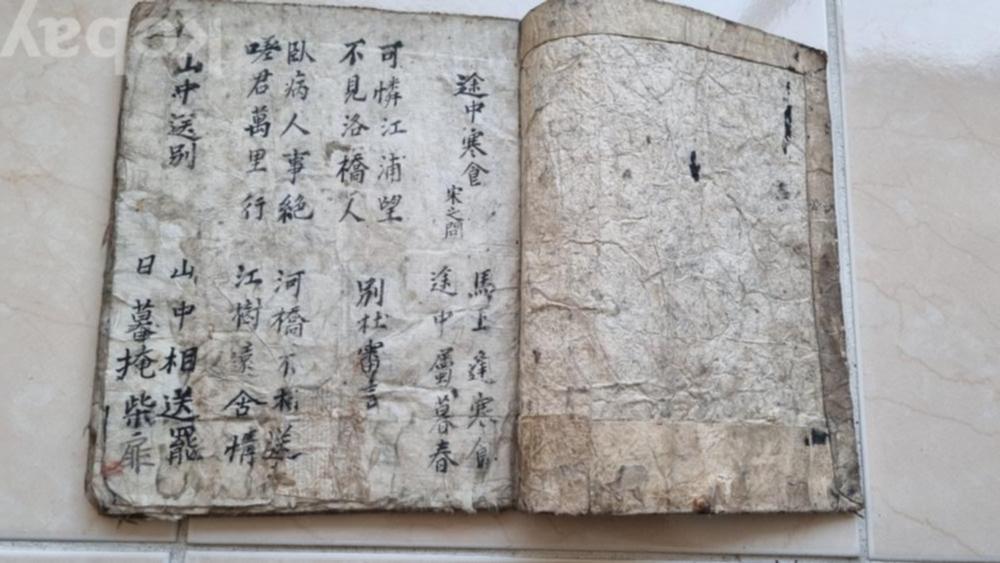 途中寒食 宋之問
馬上逢寒食
途中屬暮春
可憐江浦望
不見洛橋人
別杜審言
臥病人事絶
嗟君萬里行
河橋不相送
江樹遠含情
山中送別
山中相送罷
日暮掩柴扉
kobay